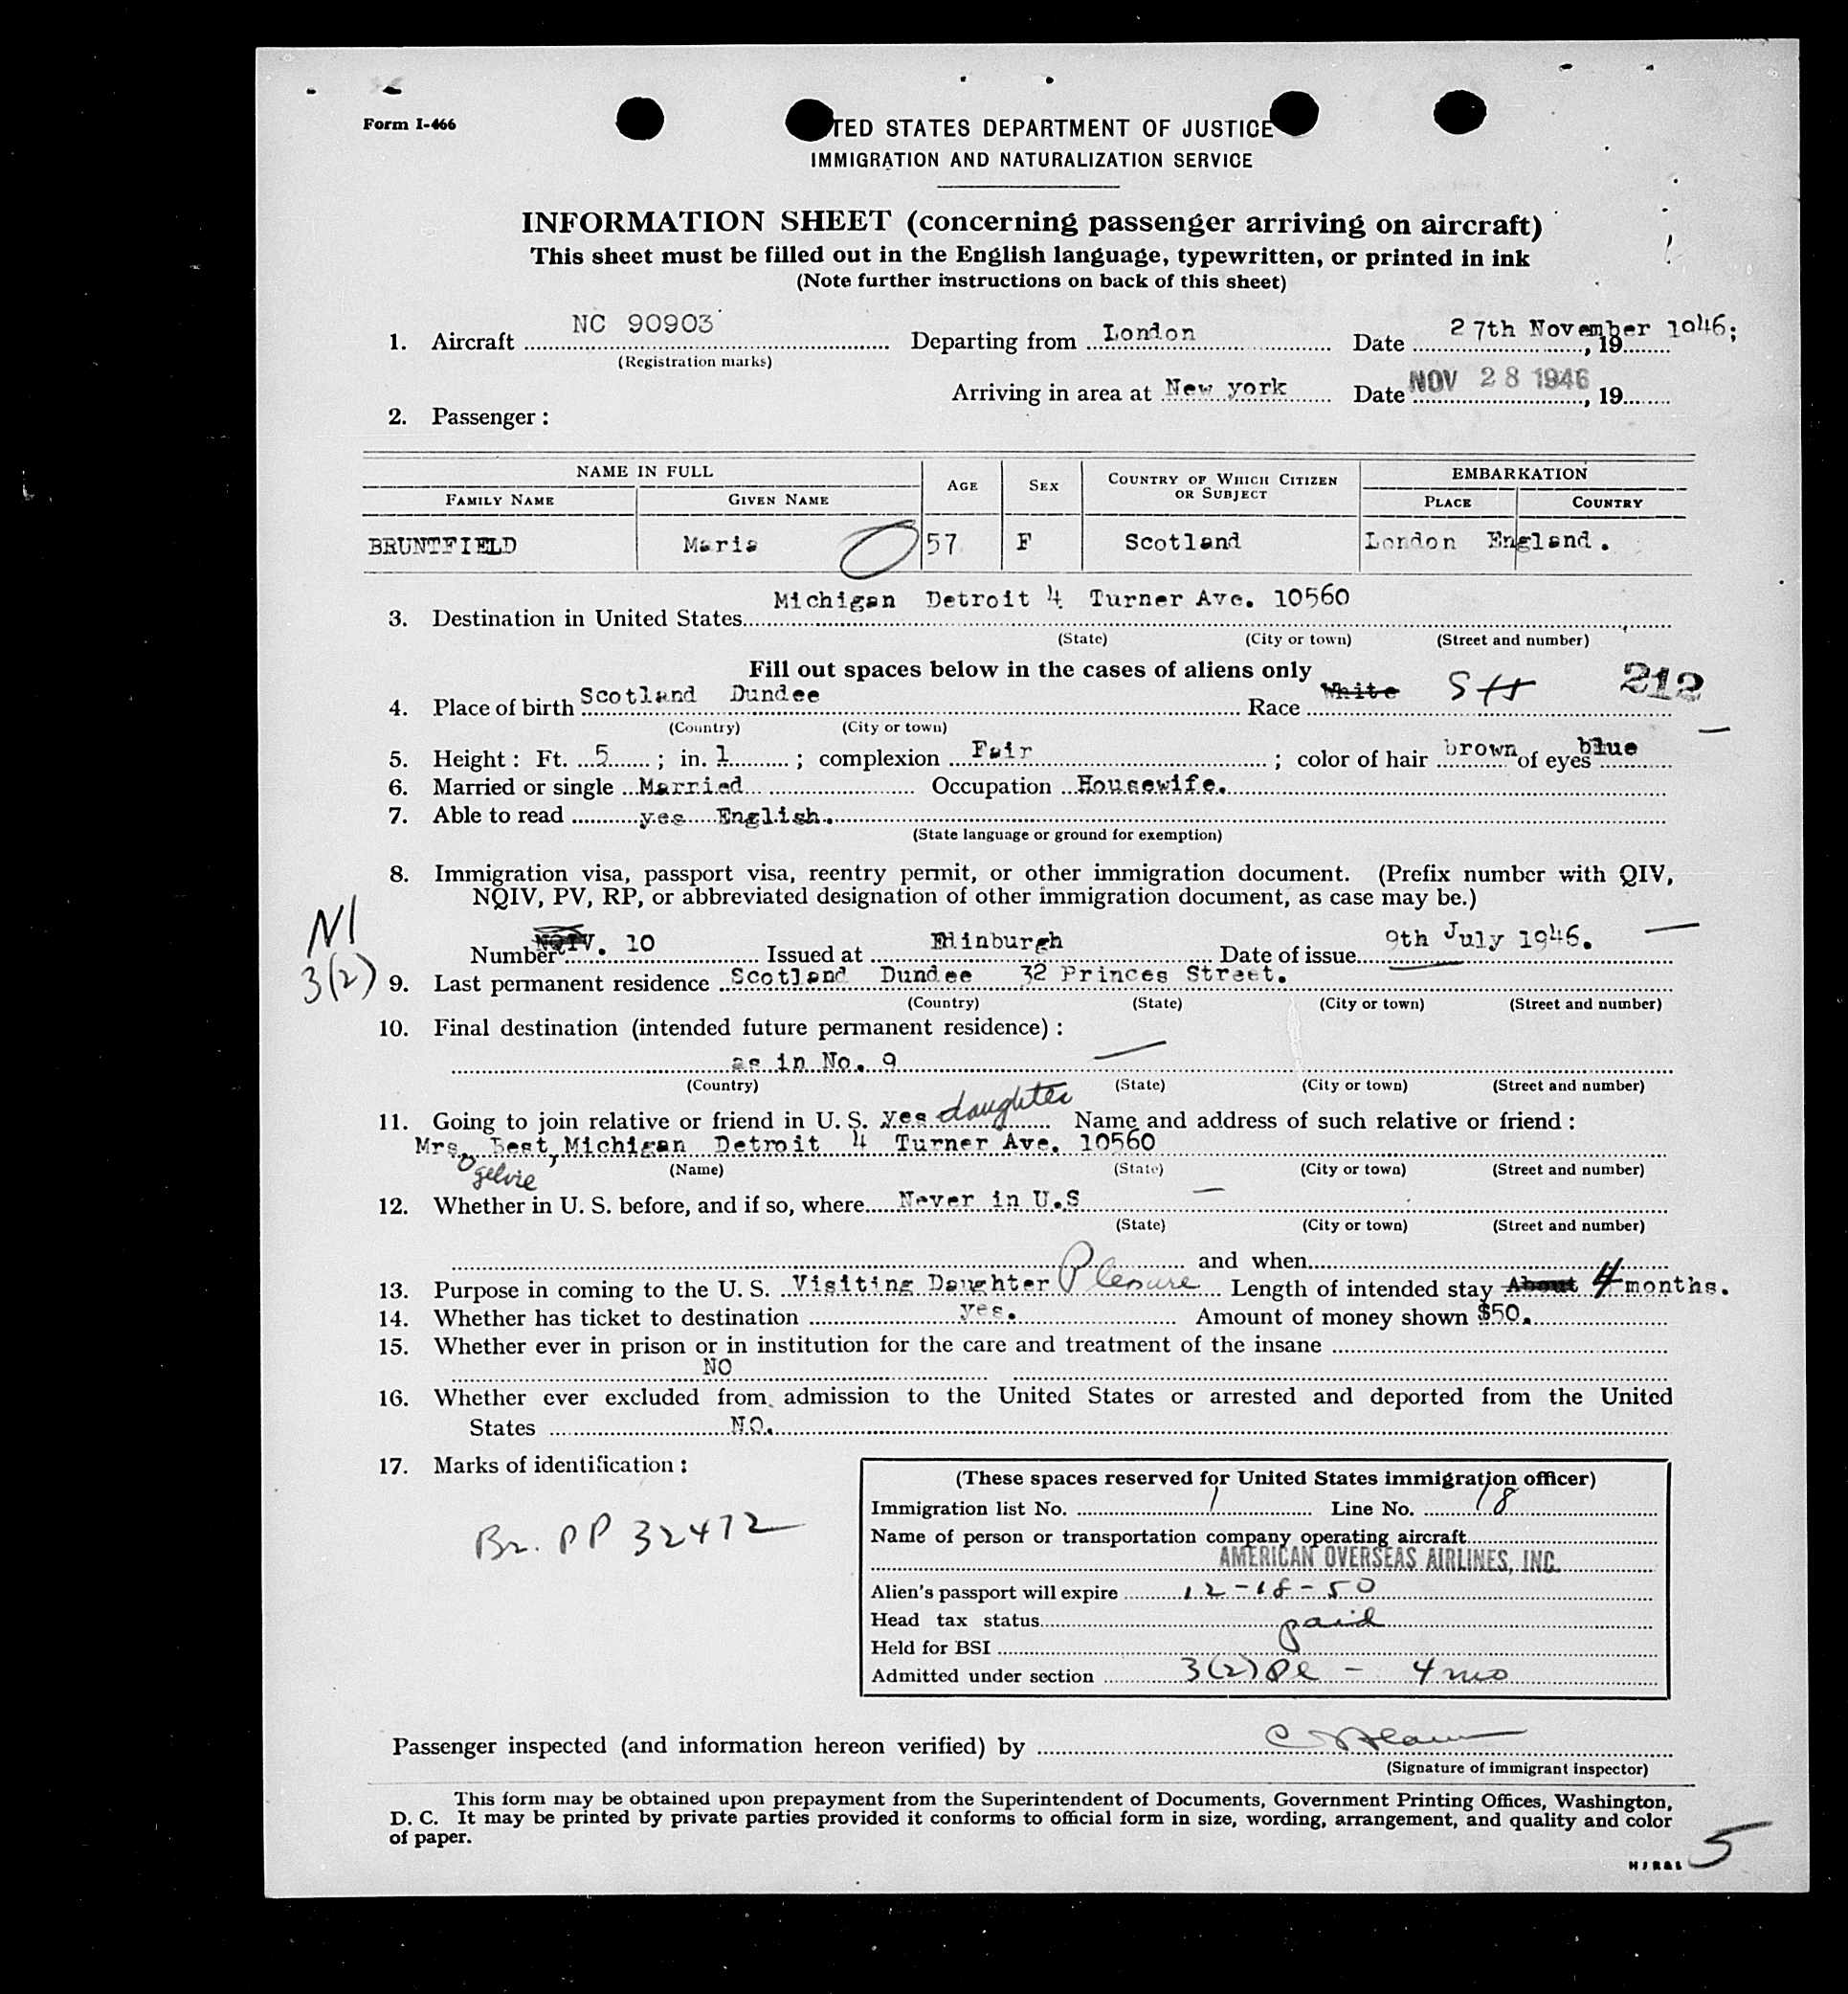 Form I-466
TED STATES DEPARTMENT OF JUSTICE
IMMIGRATION AND NATURALIZATION SERVICE
INFORMATION SHEET (concerning passenger arriving on aircraft)
This sheet must be filled out in the English language, typewritten, or printed in ink
(Note further instructions on back of this sheet)
1. Aircraft NC 90903 Departing from London Date 27th November 1946; , 19
(Registration marks)
Arriving in area at New york Date NOV 28 1946 , 19
2. Passenger :
NAME IN FULL AGE SEX COUNTRY OF WHICH CITIZEN OR SUBJECT EMBARKATION
FAMILY NAME GIVEN NAME PLACE COUNTRY
BRUNTFIELD Maria 57 F Scotland London England.
3. Destination in United States Michigan Detroit 4 Turner Ave. 10560
(State) (City or town) (Street and number)
Fill out spaces below in the cases of aliens only
212
4. Place of birth Scotland Dundee Race White
(Country) (City or town)
5. Height : Ft. 5 ; in. 1 ; complexion Fair ; color of hair brown of eyes blue
6. Married or single Married Occupation Housewife.
7. Able to read yes English.
(State language or ground for exemption)
8. Immigration visa, passport visa, reentry permit, or other immigration document. (Prefix number with QIV,
NQIV, PV, RP, or abbreviated designation of other immigration document, as case may be.)
NI
Number NQIV. 10 Issued at Edinburgh Date of issue 9th July 1946.
3(2)
9. Last permanent residence Scotland Dundee 32 Princes Street.
(Country) (State) (City or town) (Street and number)
10. Final destination (intended future permanent residence) :
as in No. 9
(Country) (State) (City or town) (Street and number)
11. Going to join relative or friend in U. S. yes daughter Name and address of such relative or friend :
Mrs. Best, Michigan Detroit 4 Turner Ave. 10560
Ogelvie (Name) (State) (City or town) (Street and number)
12. Whether in U. S. before, and if so, where Never in U.S
(State) (City or town) (Street and number)
and when
13. Purpose in coming to the U. S. Visiting Daughter Plesure Length of intended stay About 4 months.
14. Whether has ticket to destination yes. Amount of money shown $50.
15. Whether ever in prison or in institution for the care and treatment of the insane
NO
16. Whether ever excluded from admission to the United States or arrested and deported from the United
States NO.
17. Marks of identification :
Br. PP 32472
(These spaces reserved for United States immigration officer)
Immigration list No. 1 Line No. 18
Name of person or transportation company operating aircraft
AMERICAN OVERSEAS AIRLINES, INC.
Alien's passport will expire 12-18-50
Head tax status paid
Held for BSI
Admitted under section 3(2) Pl - 4 mo
Passenger inspected (and information hereon verified) by
(Signature of immigrant inspector)
This form may be obtained upon prepayment from the Superintendent of Documents, Government Printing Offices, Washington,
D. C. It may be printed by private parties provided it conforms to official form in size, wording, arrangement, and quality and color
of paper.
5